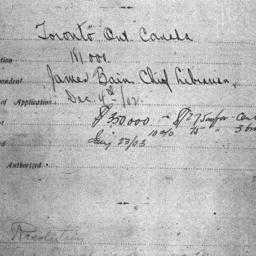 Toronto Ont Canada
tion
181,000.
pondent James Bain Chief Librarian,
of Application. Dec 4th/02.
$350000 - $275m for Cent
Jany 23/03
Authorized